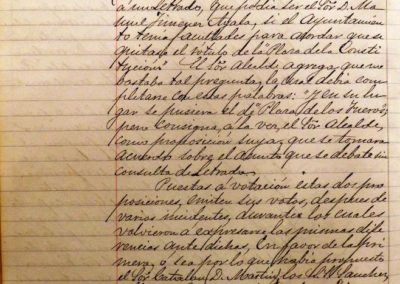 á un Letrado, que podia ser el Sor D. Ma-
nuel Jimenez Ayala, si el Ayuntamiento
tenia facultades para acordar que se
quitase el rotulo de la Plaza de la Consti-
tución". El Sor Alcalde agrega, que no
bastaba tal pregunta, la cual debia com-
pletarse con estas palabras: "Y en su lu-
gar se pusiera el de Plaza de los Fueros;
pero consigna, á la vez, el Sor Alcalde,
como proposicion suya, que se tomara
acuerdo sobre el asunto que se debate sin
consulta de Letrado.
Puestas á votación estas dos pro-
posiciones, emiten sus votos, despues de
varios incidentes, durante los cuales
volvieron á expresarse las mismas dife-
rencias ante dichas, En favor de la pri-
mera, ó sea por lo que habia propuesto
el Sor Catalan D. Martin, los S.S. Sanchez,